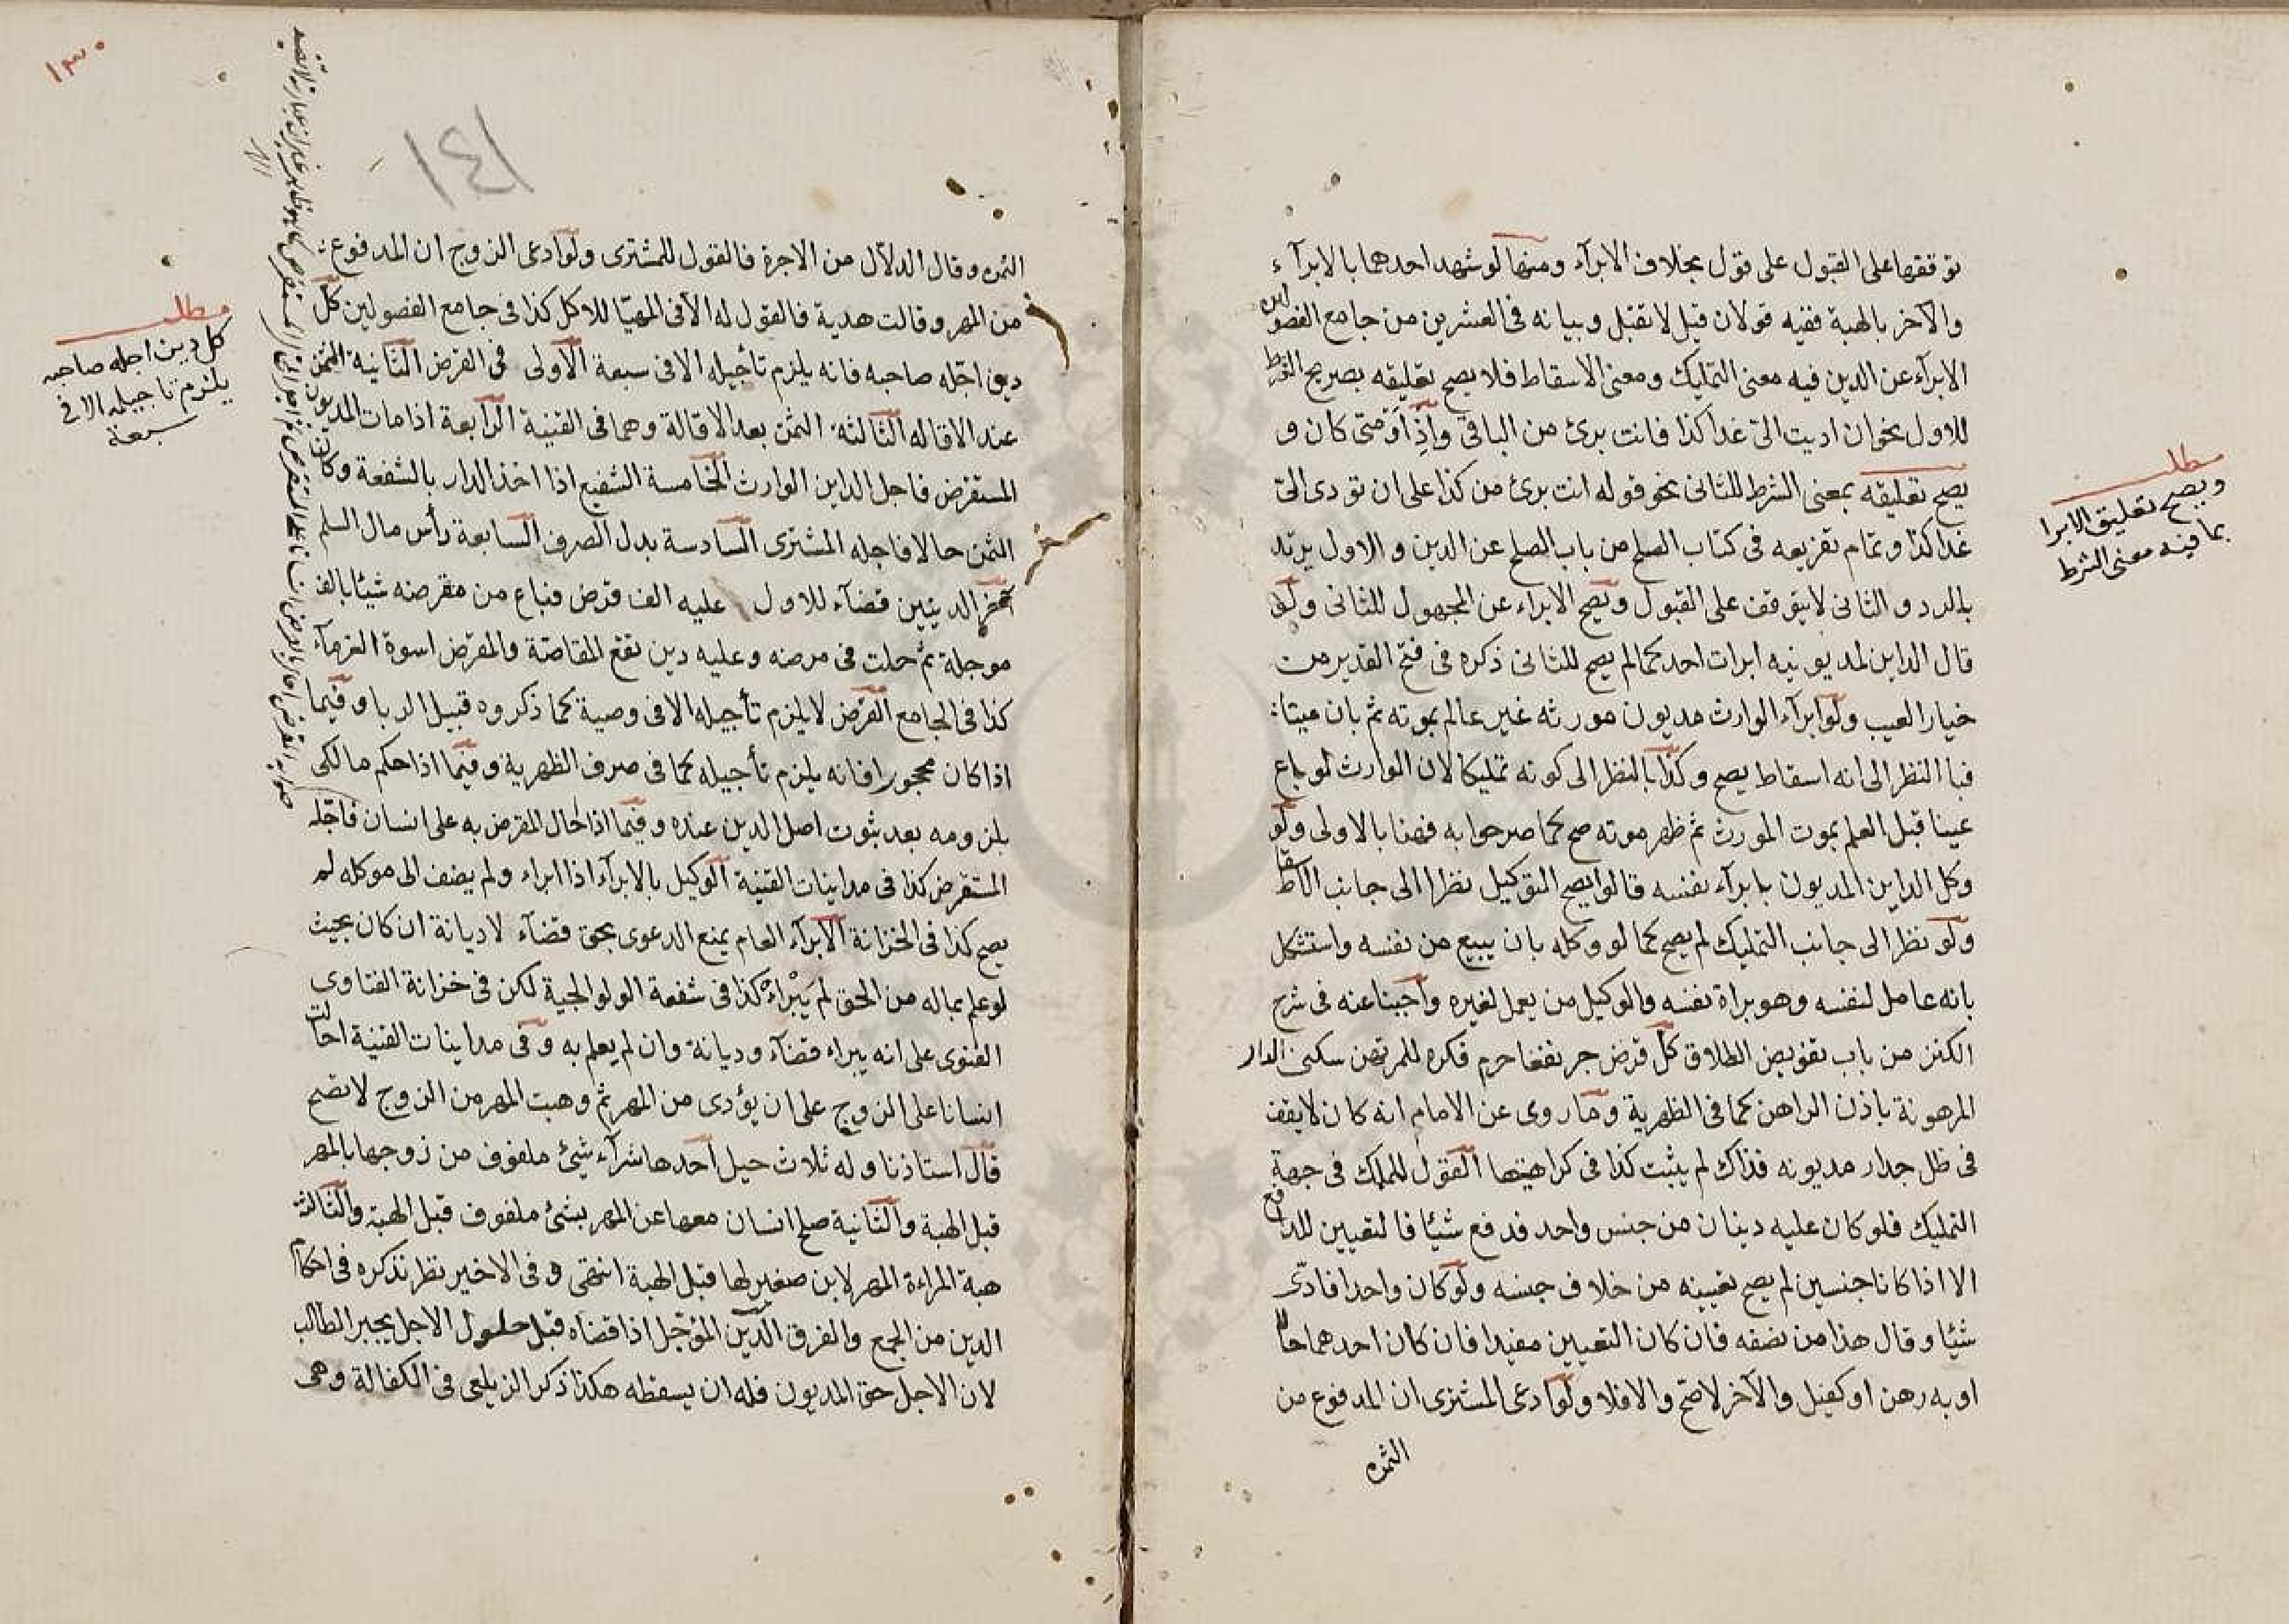 توقفها على القبول على قول بخلاف الابرآء ومنها لو شهد احدهما بالابرآء
والآخر بالهبة ففيه قولان قيل لا تقبل وبيانه فى العشرين من جامع الفصولين
الابرآء عن الدين فيه معنى التمليك ومعنى الاسقاط فلا يصح تعليقه بصريح الشرط
للاول نحو ان اديت الىّ غدا كذا فانت برئ من الباقى واذا ومتى كان و
يصح تعليقه بمعنى الشرط للثانى نحو قوله انت برئ من كذا على ان تودى الىّ
غدا كذا وتمام تفريعه فى كتاب الصلح من باب الصلح عن الدين والاول يرتد
بالرد والثانى لا يتوقف على القبول ويصح الابراء عن المجهول للثانى ولو
قال الداين لمديونيه ابرات احدكما لم يصح للثانى ذكره فى فتح القدير من
خيار العيب ولو ابرآء الوارث مديون مورثه غير عالم بموته ثم بان ميتا
فبا النظر الى انه اسقاط يصح وكذا بالنظر الى كونه تمليكا لان الوارث لو باع
عينا قبل العلم بموت المورث ثم ظهر موته صح كما صرحوا به فهنا بالاولى ولو
وكل الداين المديون بابرآء نفسه قالوا يصح التوكيل نظرا الى جانب الاسقاط
ولو نظر الى جانب التمليك لم يصح كما لو وكله بان يبيع من نفسه واستشكل
بانه عامل لنفسه وهو براة نفسه والوكيل من يعمل لغيره واجبنا عنه فى شرح
الكنز من باب تفويض الطلاق كل قرض جر نفعا حرم فكره للمرتهن سكنى الدار
المرهونة باذن الراهن كما فى الظهرية وما روى عن الامام انه كان لا يقف
فى ظل جدار مديونه فذاك لم يثبت كذا فى كراهيتها القول للملك فى جهة
التمليك فلو كان عليه دينان من جنس واحد فدفع شيئا فالتعيين للدافع
الا اذا كانا جنسين لم يصح تعيينه من خلاف جنسه ولو كان واحدا فادّى
شيئا وقال هذا من نصفه فان كان التعيين مفيدا فان كان احدهما حالّا
او به رهن او كفيل والآخر لا صح والا فلا ولو ادعى المشترى ان المدفوع من
الثمن
مطلب
ويصح تعليق الابرا
بما فيه معنى الشرط
١٣٠
١٤١
الثمن وقال الدلّال من الاجرة فالقول للمشترى ولو ادعى الزوج ان المدفوع
من المهر وقالت هدية فالقول له الا فى المهيّا للاكل كذا فى جامع الفصولين كلّ
دين اجّله صاحبه فانه يلزم تأجيله الا فى سبعة الاولى فى القرض الثانية الثمن
عند الاقاله الثالثة الثمن بعد الاقالة وهما فى القنية الرابعة اذا مات المديون
المستقرض فاجل الداين الوارث الخامسة الشفيع اذا اخذ الدار بالشفعة وكان
الثمن حالا فاجله المشترى السادسة بدل الصرف السابعة رأس مال السلم
آخر الدينين قضآء للاول عليه الف قرض فباع من مقرضه شيئا بالف
موجلة ثم حلت فى مرضه وعليه دين تقع المقاصّة والمقرض اسوة الغرمآء
كذا فى الجامع القرض لا يلزم تأجيله الا فى وصية كما ذكروه قبيل الربا وفيما
اذا كان مجحورا فانه يلزم تأجيله كما فى صرف الظهرية وفيما اذا حكم مالكى
بلزومه بعد ثبوت اصل الدين عنده وفيما اذا حال المقرض به على انسان فاجّله
المستقرض كذا فى مداينات القنية الوكيل بالابرآء اذا ابراء ولم يضف الى موكله لم
يصح كذا فى الخزانة الابرآء العام يمنع الدعوى بحق قضآء لا ديانة ان كان بحيث
لو علم بماله من الحق لم يبراء كذا فى شفعة الولوالجية لكن فى خزانة الفتاوى
الفتوى على انه يبراء قضآء وديانة وان لم يعلم به وفى مداينات القنية احالت
انسانا على الزوج على ان يؤدى من المهر ثم وهبت المهر من الزوج لا تصح
قال استاذنا وله ثلاث حيل احدها شرآء شئ ملفوف من زوجها بالمهر
قبل الهبة والثانية صلح انسان معها عن المهر بشئ ملفوف قبل الهبة والثالثة
هبة المراءة المهر لابن صغير لها قبل الهبة انتهى وفى الاخير نظر نذكره فى احكام
الدين من الجمع والفرق الدين المؤجّل اذا قضاه قبل حلول الاجل يجبر الطالب
لان الاجل حق المديون فله ان يسقطه هكذا ذكر الزيلعى فى الكفالة وهى
مطلب
كل دين اجله صاحبه
يلزم تاجيله الا فى
سبعة